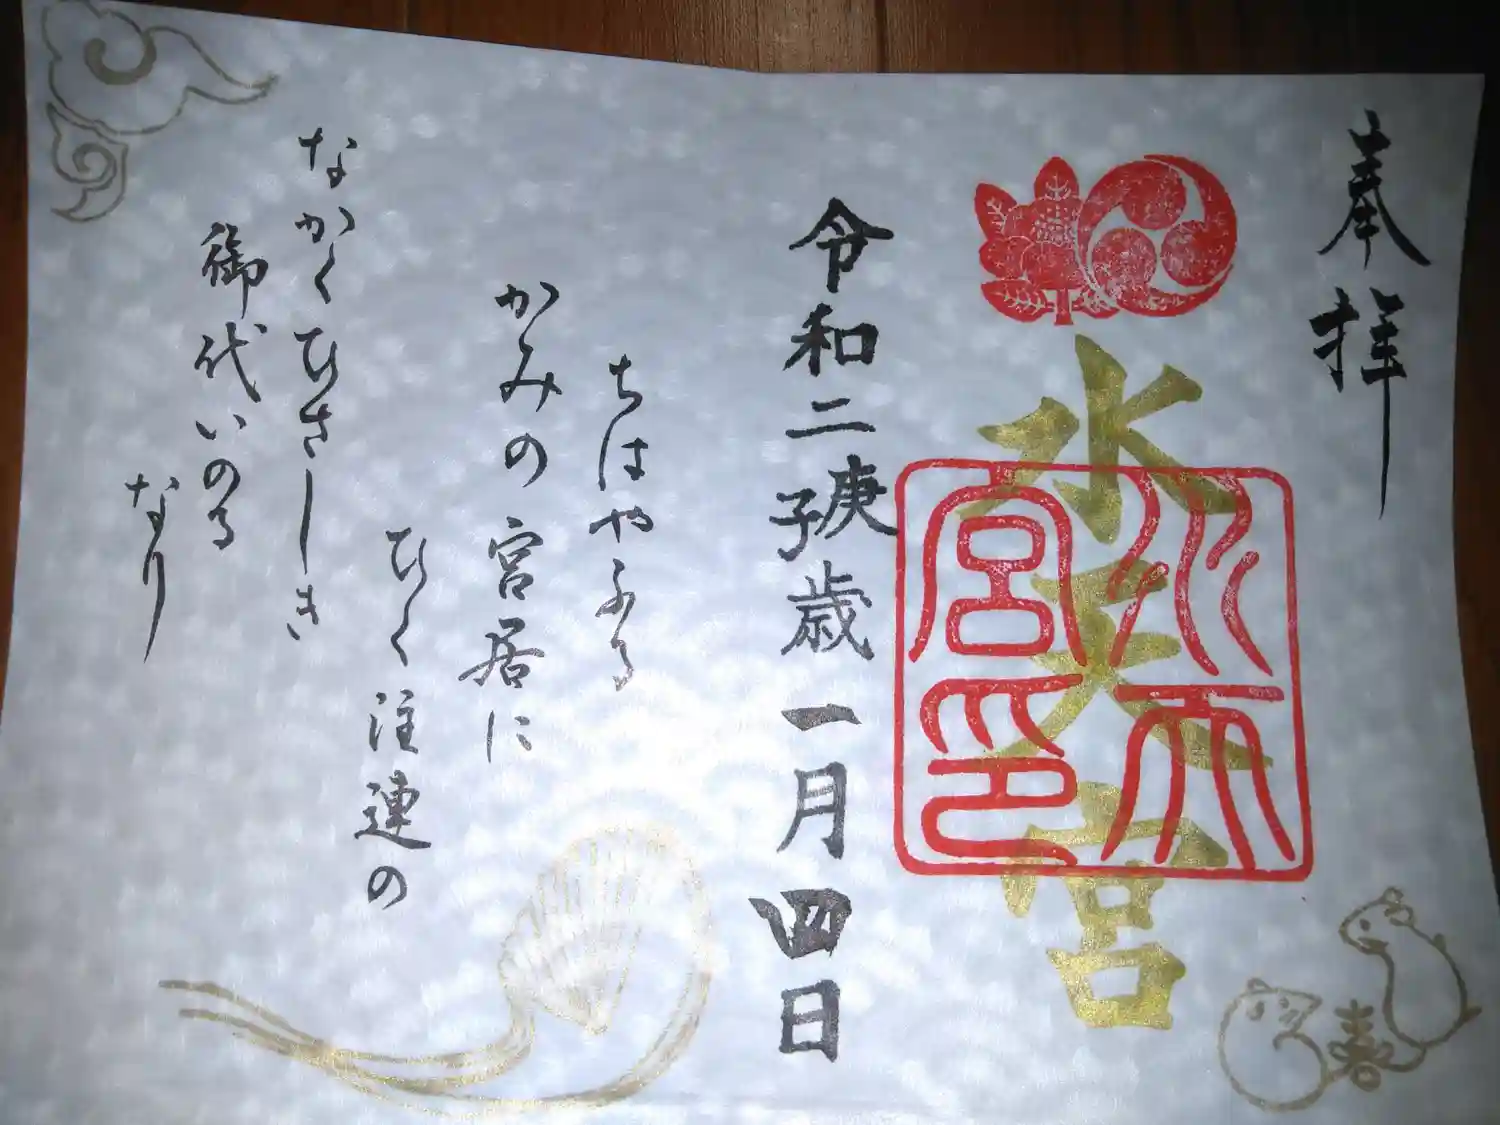 奉拝
水天宮
水天宮印
令和二庚子歳一月四日
ちはやふる
かみの宮居に
ひく注連の
なかくひさしき
御代いのる
なり
春